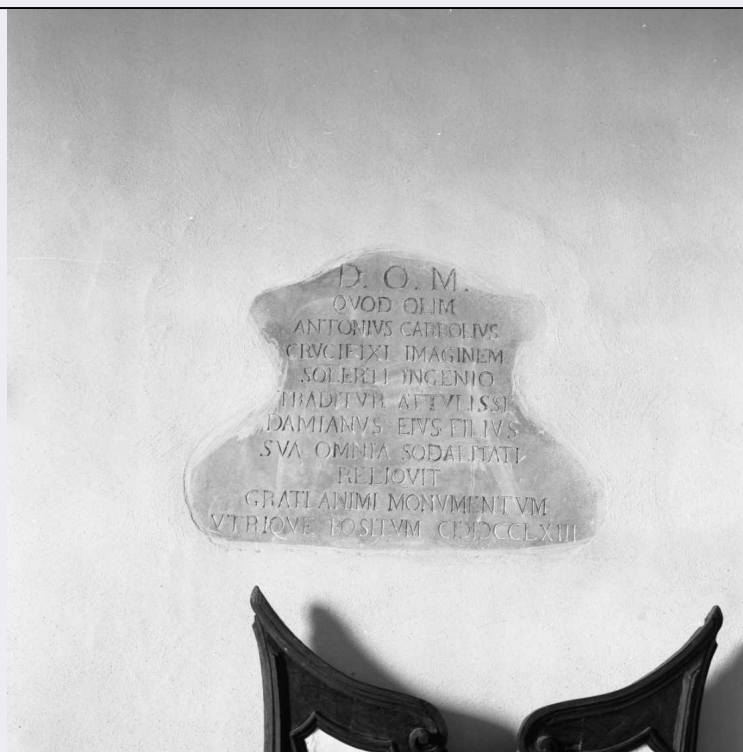 D. O. M.
QVOD OLIM
ANTONIVS CARROLIVS
CRVCIFIXI IMAGINEM
SOLERTI INGENIO
TRADITVR ATTVLISSE
DAMIANVS EIVS FILIVS
SVA OMNIA SODALITATI
RELIQVIT
GRATI ANIMI MONVMENTVM
VTRIQVE POSITVM